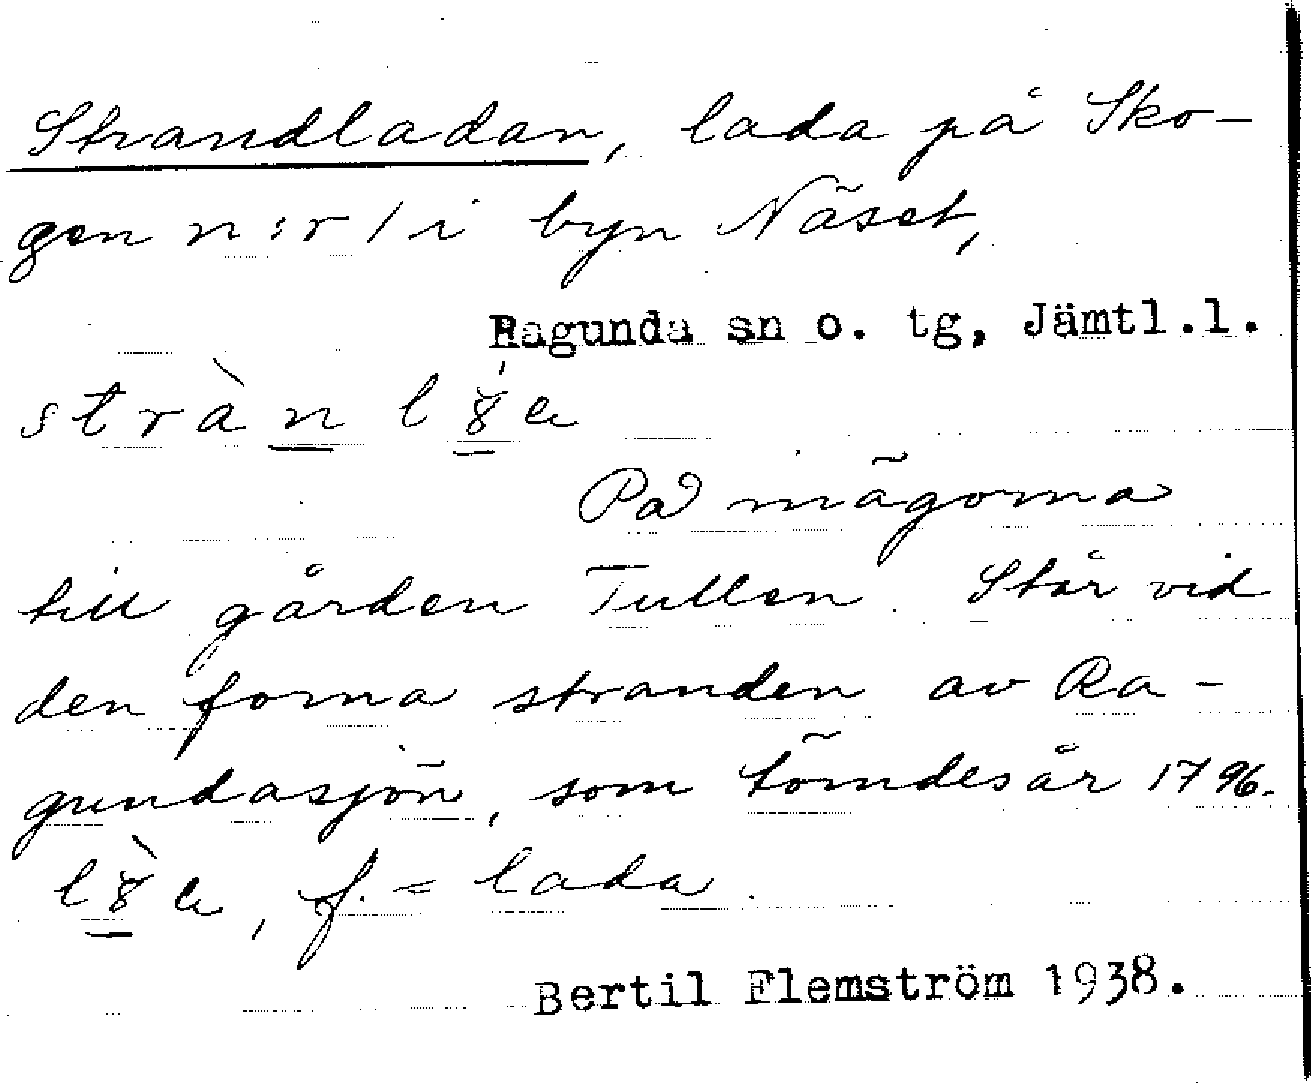 Strandladan, lada på Sko-
gen n:r 1 i byn Näset,
Ragunda sn o. tg, Jämtl.l.
På inägorna
till gården Tullen. Står vid
den forna stranden av Ra-
gundasjön, som tömdes år 1796.
f. = lada.
Bertil Flemström 1938.